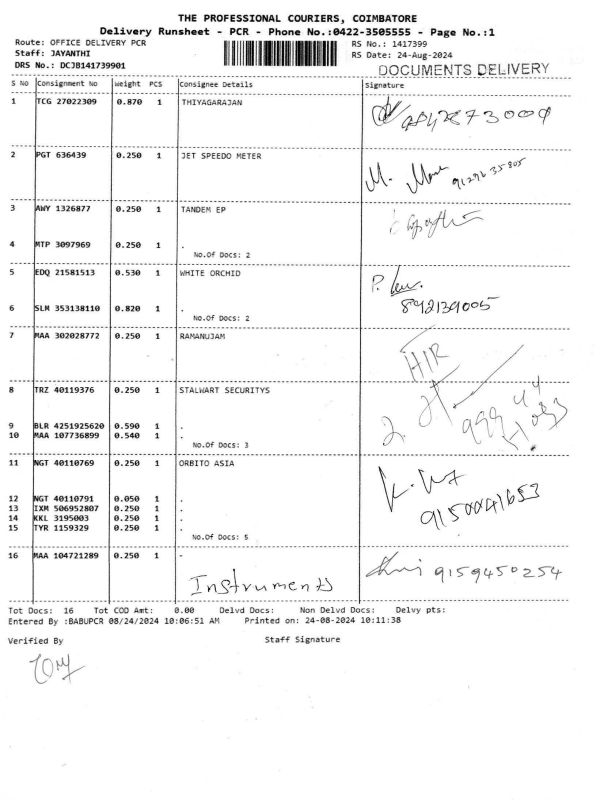 THE PROFESSIONAL COURIERS, COIMBATORE
Delivery Runsheet - PCR - Phone No.:0422-3505555 - Page No.:1
Route: OFFICE DELIVERY PCR
RS No.: 1417399
Staff: JAYANTHI
RS Date: 24-Aug-2024
DRS No.: DCJB141739901
DOCUMENTS DELIVERY
S No Consignment No Weight PCS Consignee Details Signature
1 TCG 27022309 0.870 1 THIYAGARAJAN
2 PGT 636439 0.250 1 JET SPEEDO METER
9129635805
3 AWY 1326877 0.250 1 TANDEM EP
4 MTP 3097969 0.250 1 .
No.Of Docs: 2
5 EDQ 21581513 0.530 1 WHITE ORCHID
6 SLM 353138110 0.820 1 .
892139005
No.Of Docs: 2
7 MAA 302028772 0.250 1 RAMANUJAM
HIR
8 TRZ 40119376 0.250 1 STALWART SECURITYS
9 BLR 4251925620 0.590 1 .
10 MAA 107736899 0.540 1 .
No.Of Docs: 3
11 NGT 40110769 0.250 1 ORBITO ASIA
12 NGT 40110791 0.050 1 .
13 IXM 506952807 0.250 1 .
14 KKL 3195003 0.250 1 .
15 TYR 1159329 0.250 1 .
9150041653
No.Of Docs: 5
16 MAA 104721289 0.250 1 -
Instruments
9159450254
Tot Docs: 16 Tot COD Amt: 0.00 Delvd Docs: Non Delvd Docs: Delvy pts:
Entered By :BABUPCR 08/24/2024 10:06:51 AM Printed on: 24-08-2024 10:11:38
Verified By Staff Signature